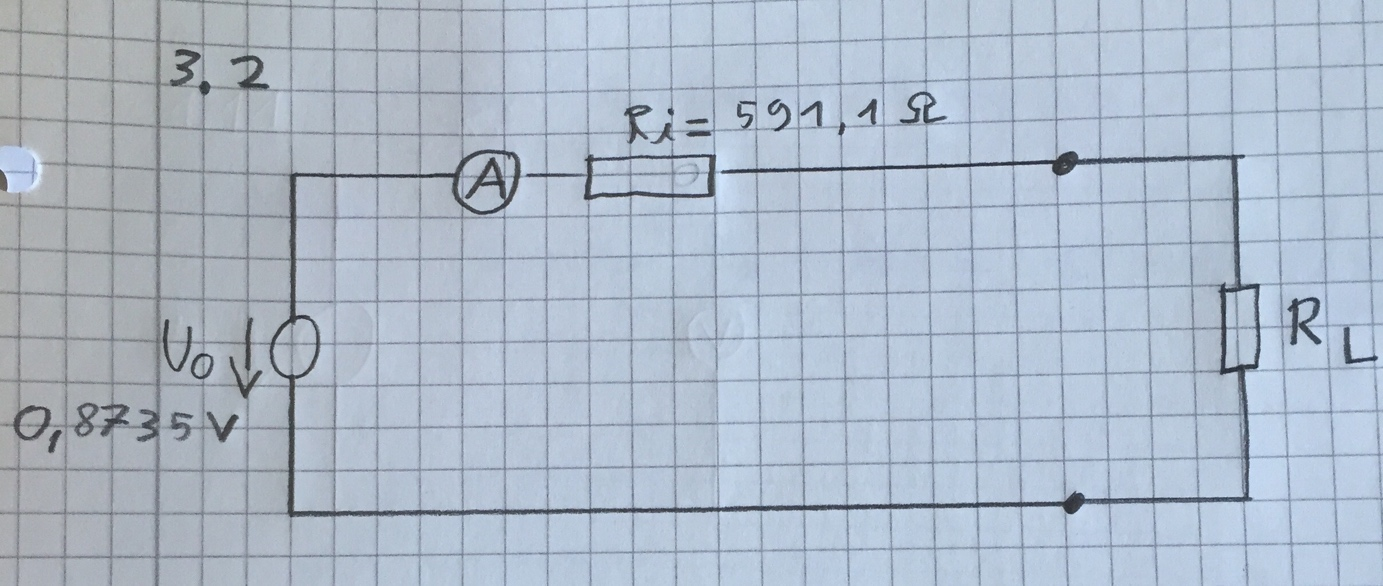 3.2
Ri = 591,1 Ω
A
U0
0,8735 V
RL